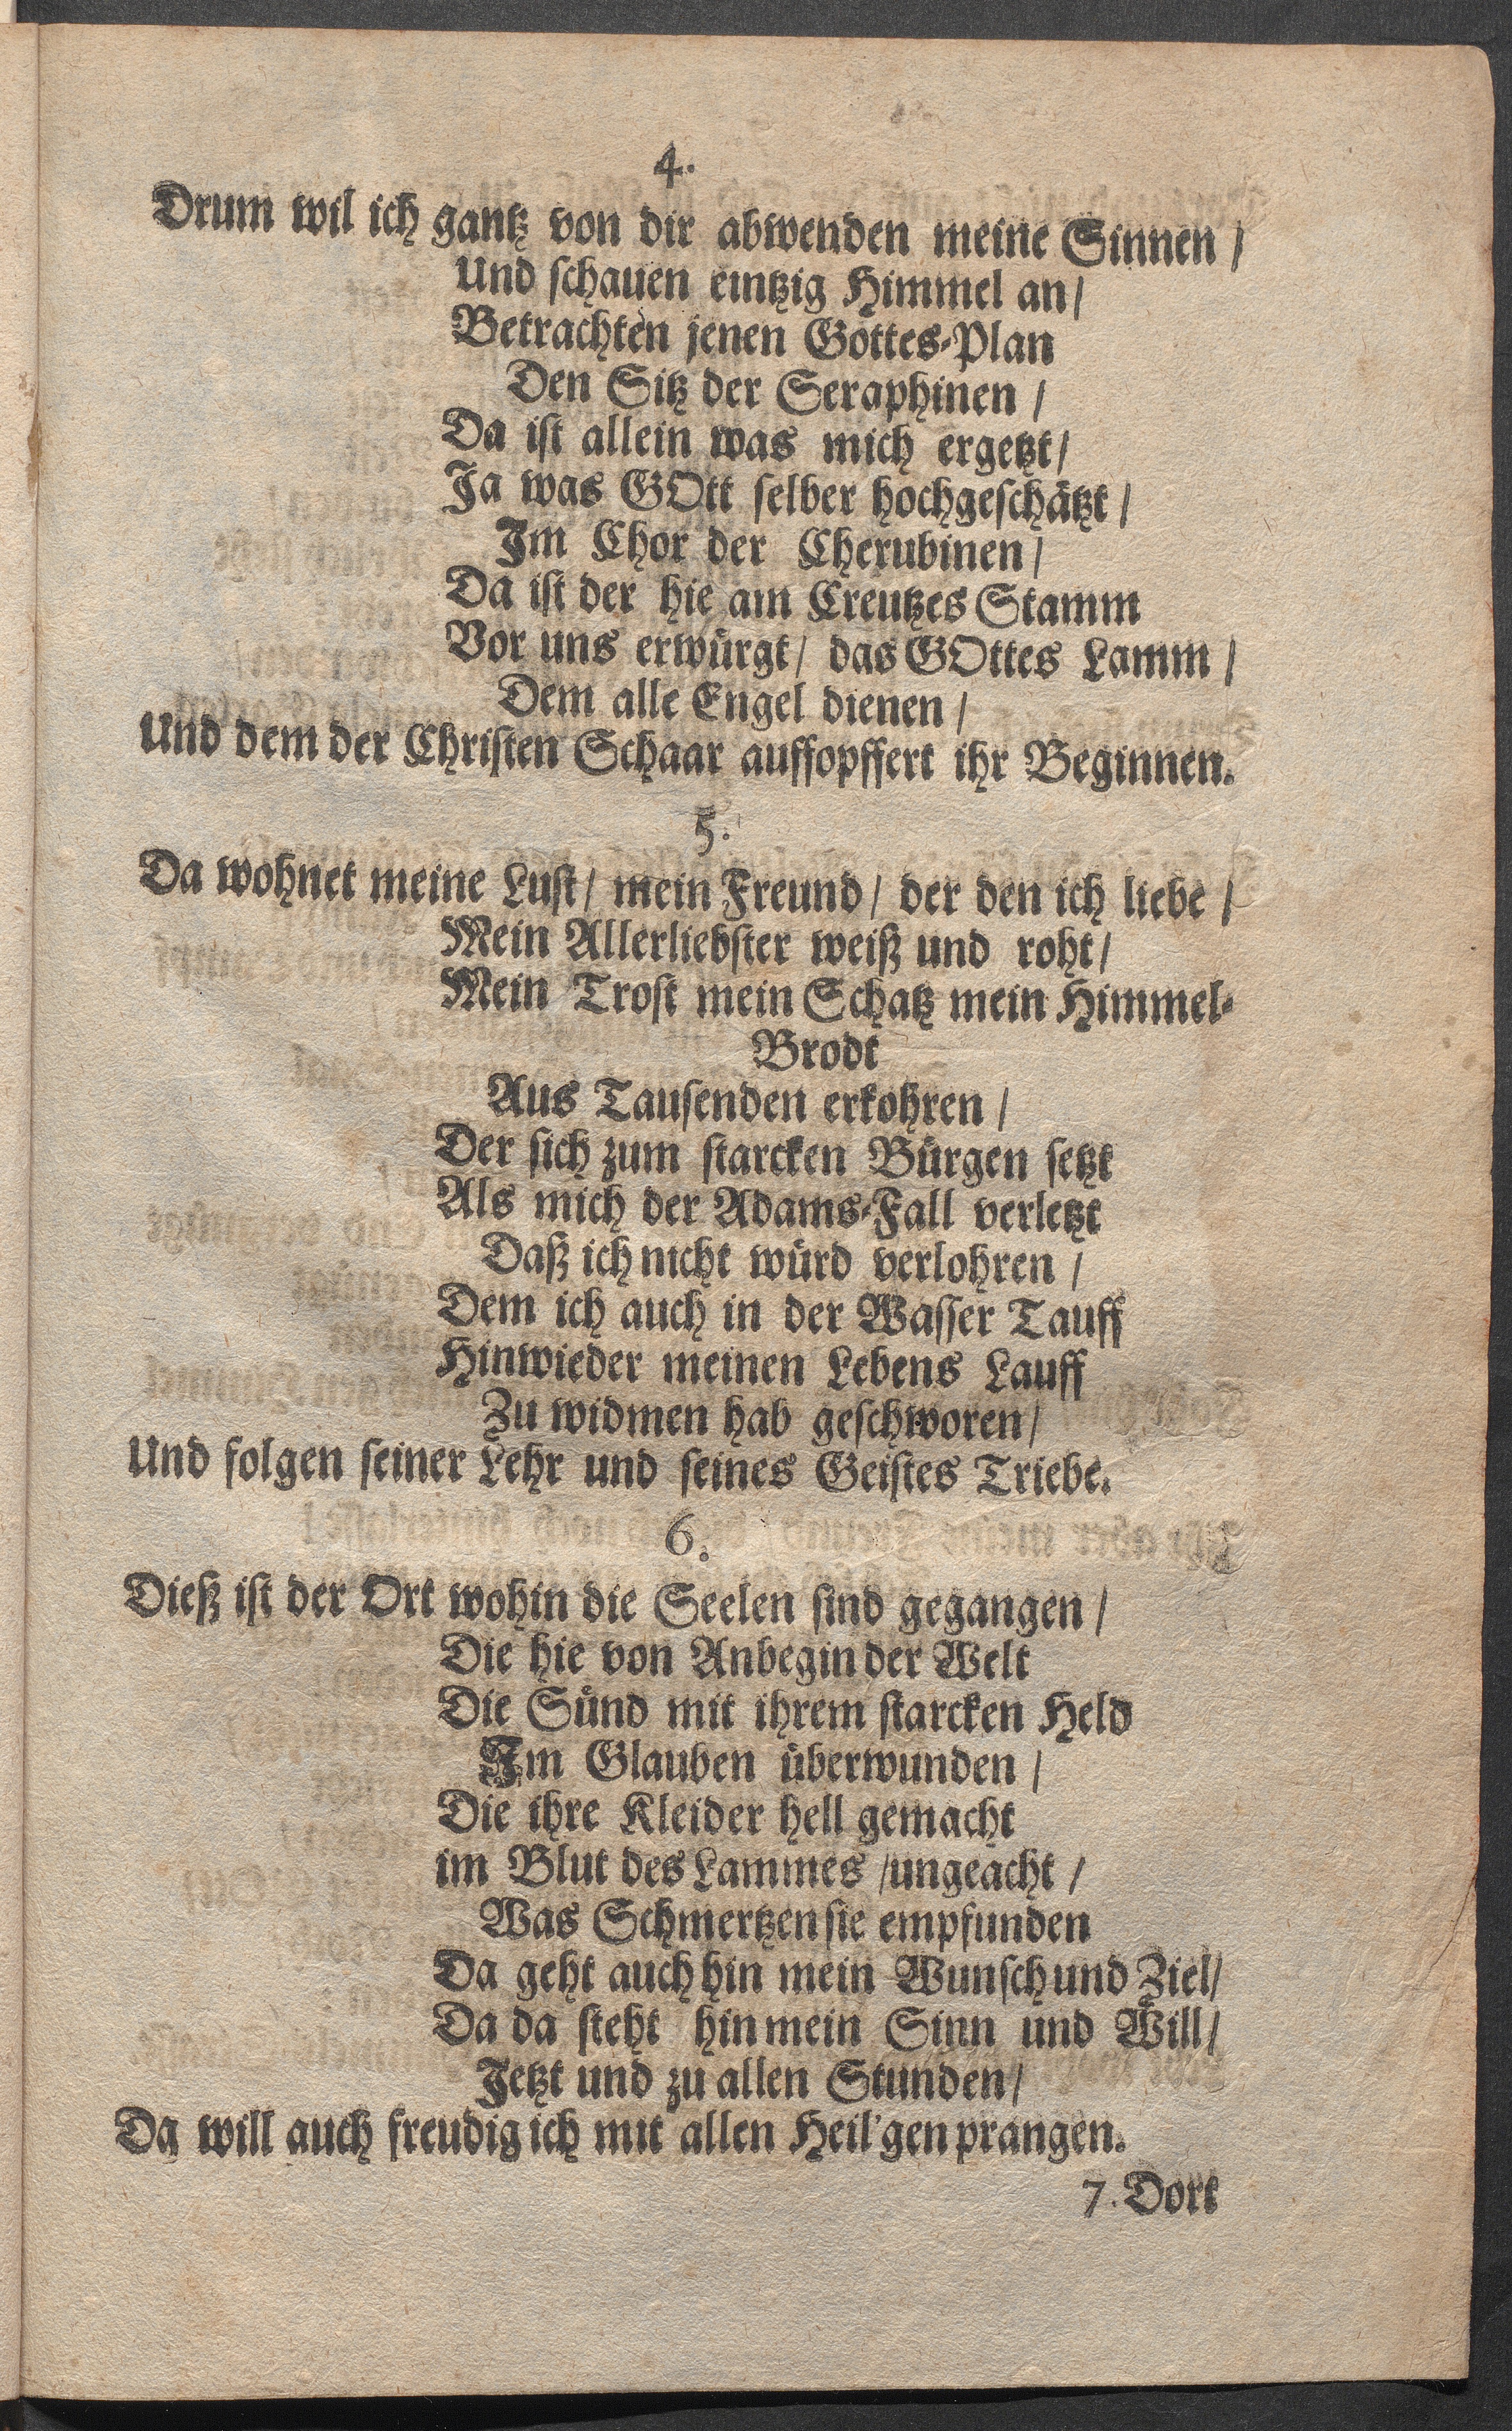 4.
Drum wil ich gantz von dir abwenden meine Sinnen /
Und schauen eintzig Himmel an /
Betrachten jenen Gottes-Plan
Den Sitz der Seraphinen /
Da ist allein was mich ergetzt /
Ja was GOtt selber hochgeschätzt /
Im Chor der Cherubinen /
Da ist der hie am Creutzes Stamm
Vor uns erwürgt / das GOttes Lamm /
Dem alle Engel dienen /
Und dem der Christen Schaar auffopffert ihr Beginnen.
5.
Da wohnet meine Lust / mein Freund / der den ich liebe /
Mein Allerliebster weiß und roht /
Mein Trost mein Schatz mein Himmel-
Brodt
Aus Tausenden erkohren /
Der sich zum starcken Bürgen setzt
Als mich der Adams-Fall verletzt
Daß ich nicht würd verlohren /
Dem ich auch in der Wasser Tauff
Hinwieder meinen Lebens Lauff
Zu widmen hab geschworen /
Und folgen seiner Lehr und seines Geistes Triebe.
6.
Dieß ist der Ort wohin die Seelen sind gegangen /
Die hie von Anbegin der Welt
Die Sünd mit ihrem starcken Held
Im Glauben überwunden /
Die ihre Kleider hell gemacht
im Blut des Lammes / ungeacht /
Was Schmertzen sie empfunden
Da geht auch hin mein Wunsch und Ziel /
Da da steht hin mein Sinn und Will /
Jetzt und zu allen Stunden /
Da will auch freudig ich mit allen Heil'gen prangen.
7. Dort